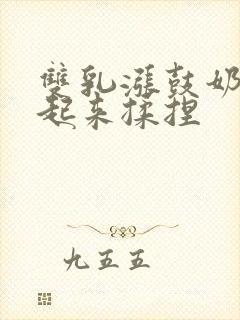 雙乳漲鼓奶
起来揉捏
九五五